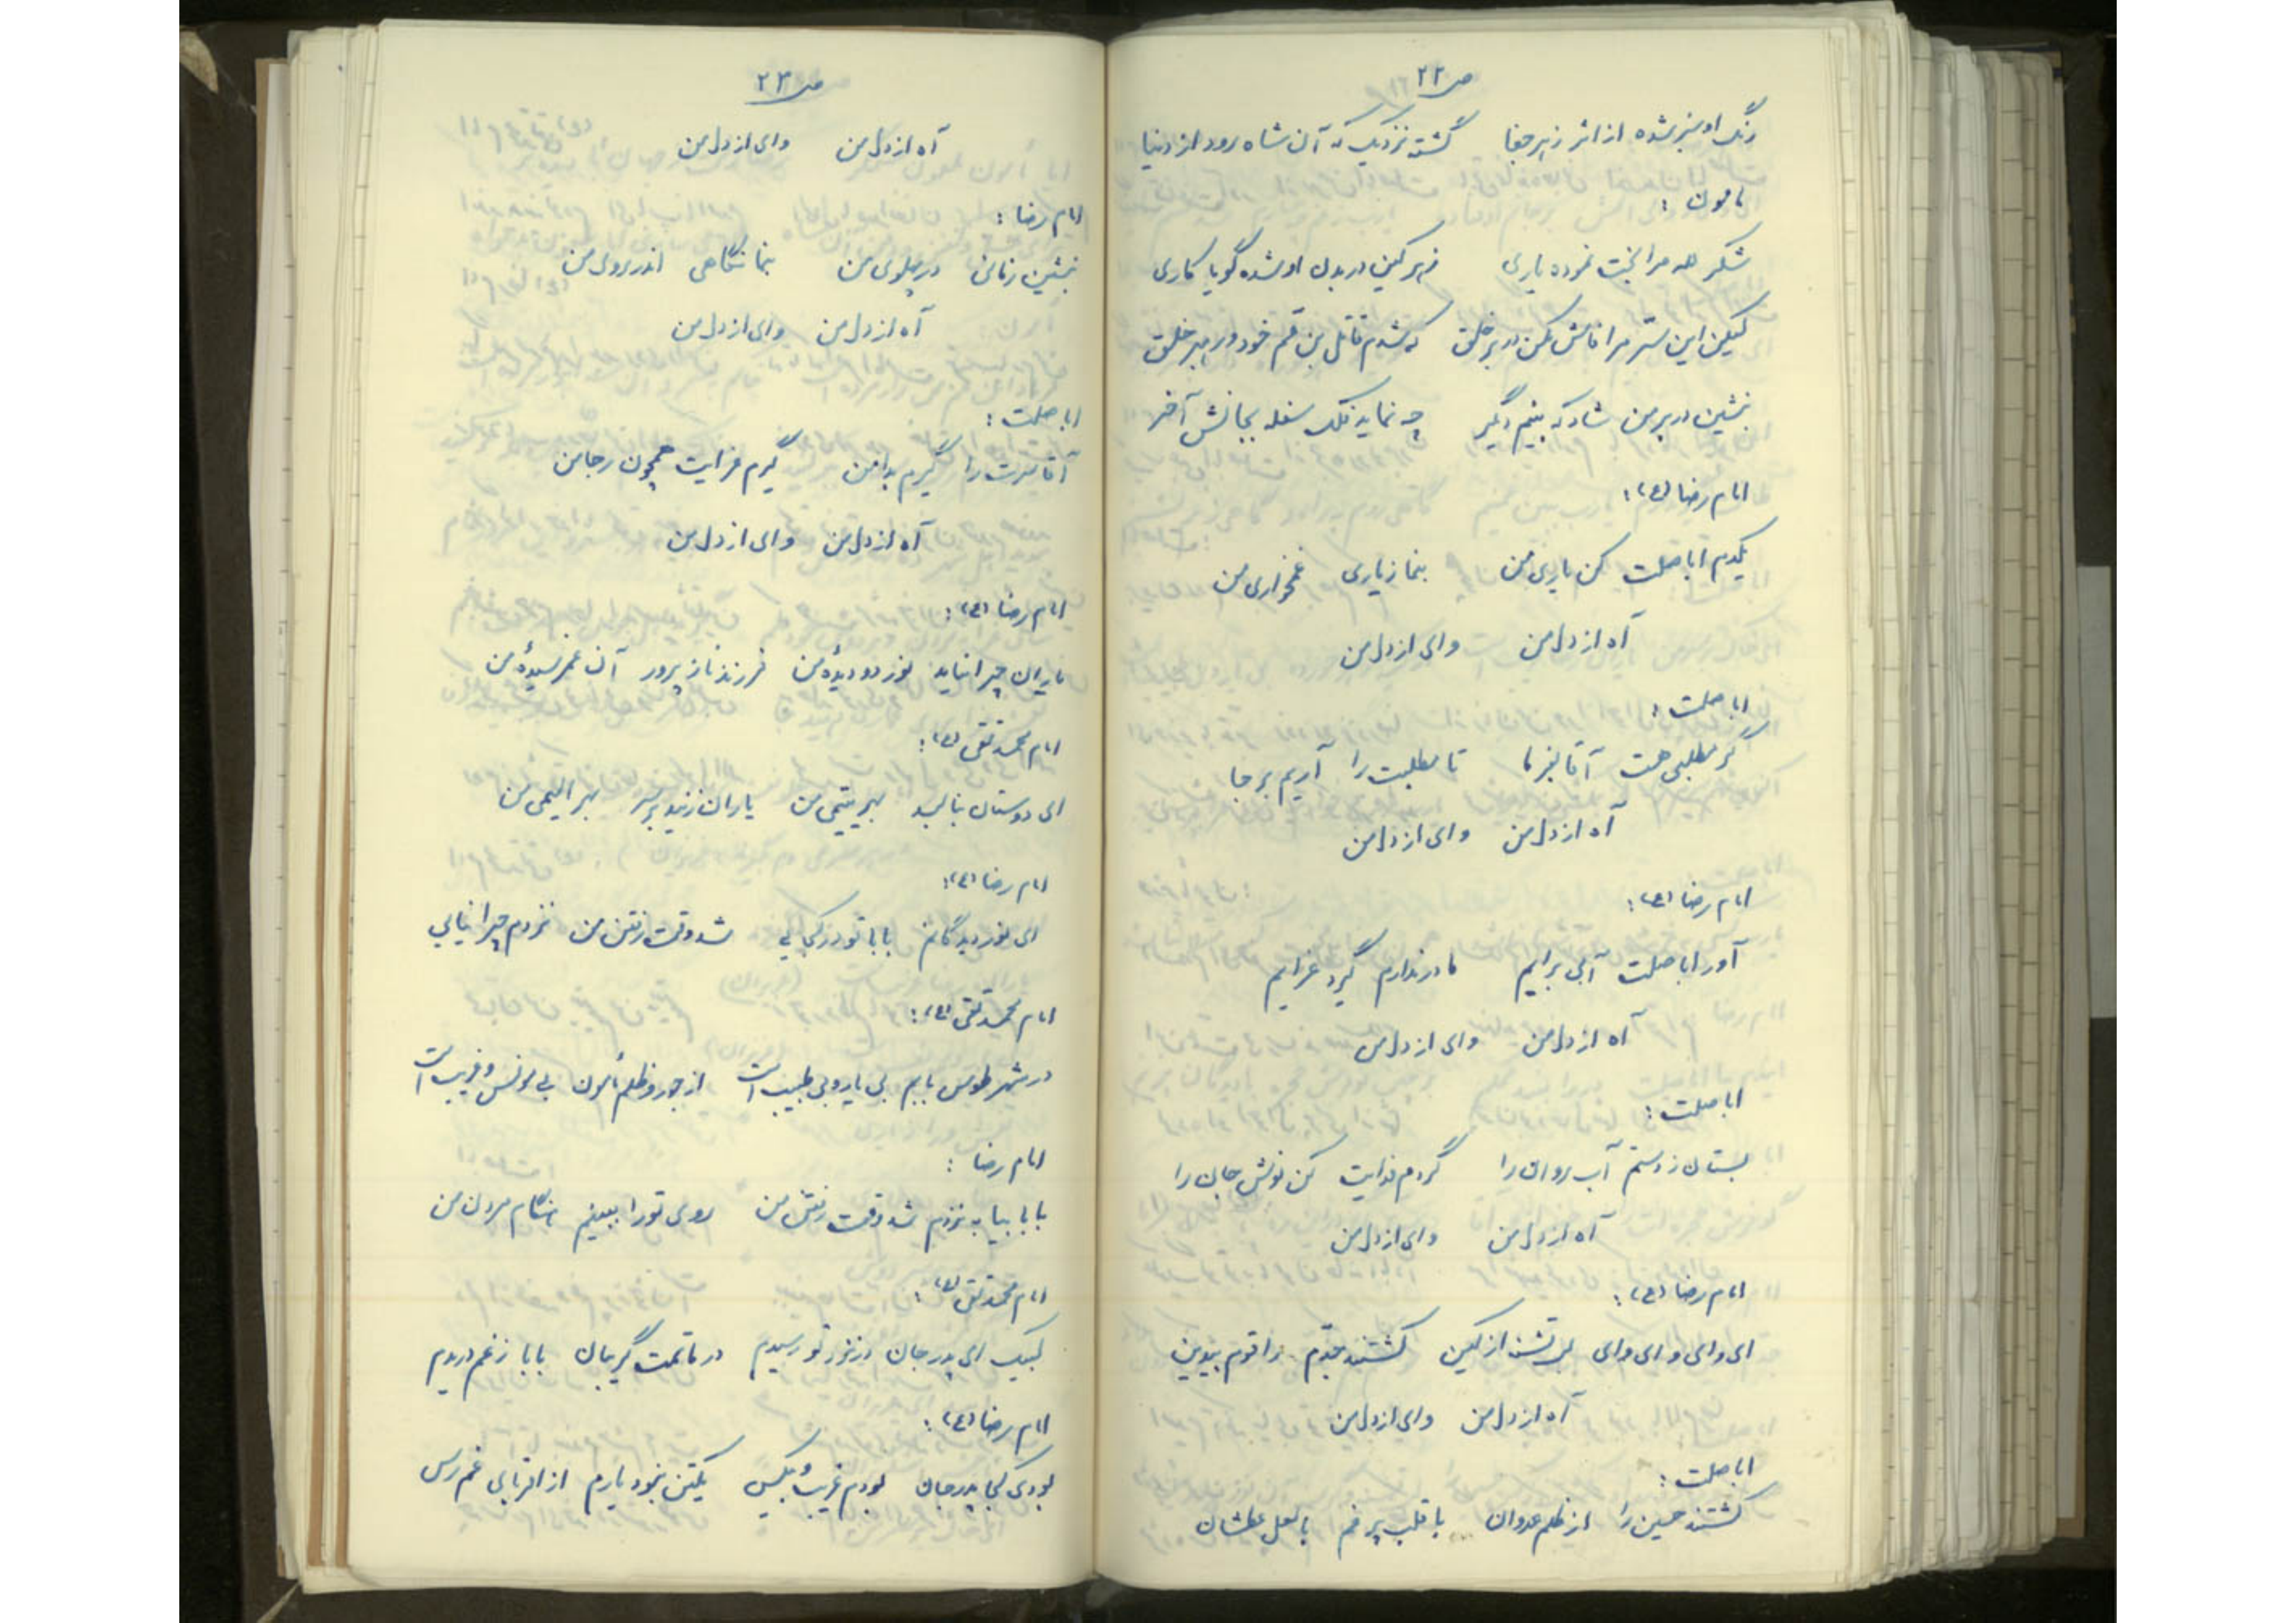 ص ۲۲
رنگ او سبز شده از اثر زهر جفا گشته نزدیک که آن شاه رود از دنیا
مامون :
شکر لله مرا بخت نموده یاری زهر کین در بدن او شده گویا کاری
لیکن این ستر مرا فاش مکن در بر خلق که شدم قاتل بن عم خود در بر خلق
بنشین در بر من شاد که بینم دیگر چه نماید فلک سفله بجانش آخر
امام رضا (ع) :
یکدم اباصلت کن یاری من بنما ز یاری غمخواری من
آه از دل من وای از دل من
اباصلت :
گر مطلبی هست آقا بفرما تا مطلبت را آریم بر جا
آه از دل من وای از دل من
امام رضا (ع) :
آور اباصلت آبی برایم مادر ندارم گیرد عزایم
آه از دل من وای از دل من
اباصلت :
بستان ز دستم آب روان را گردم فدایت کن نوش جان را
آه از دل من وای از دل من
امام رضا (ع) :
ای وای و ای وای لب تشنه از کین کشتند جدم را قوم بیدین
آه از دل من وای از دل من
اباصلت :
کشتند حسین را از ظلم عدوان با قلب پر غم با لعل عطشان
ص ۲۳
آه از دل من وای از دل من
امام رضا :
بنشین زمانی در پهلوی من بنما نگاهی اندر روی من
آه از دل من وای از دل من
اباصلت :
آقا سرت را گیرم بدامن گیرم عزایت همچون رجا من
آه از دل من وای از دل من
امام رضا (ع) :
یاران چرا نیاید نور دو دیدهٔ من فرزند نازپرور آن غمرسیدهٔ من
امام محمد تقی (ع) :
ای دوستان بنالید بهر یتیمی من یاران زنید بر سر بهر الیمی من
امام رضا (ع) :
ای نور دیدگانم بابا تو در کجایی شد وقت رفتن من نزدم چرا نیایی
امام محمد تقی (ع) :
در شهر طوس بابم بی یار و بی طبیب است از جور و ظلم مأمون بی مونس و غریب است
امام رضا :
بابا بیا به نزدم شد وقت رفتن من روی تو را ببینم هنگام مردن من
امام محمد تقی (ع) :
لبیک ای پدر جان در نزد تو رسیدم در ماتمت گریبان بابا ز غم دریدم
امام رضا (ع) :
بودی کجا پدر جان بودم غریب و بیکس یکتن نبود یارم از اقربای غمرس